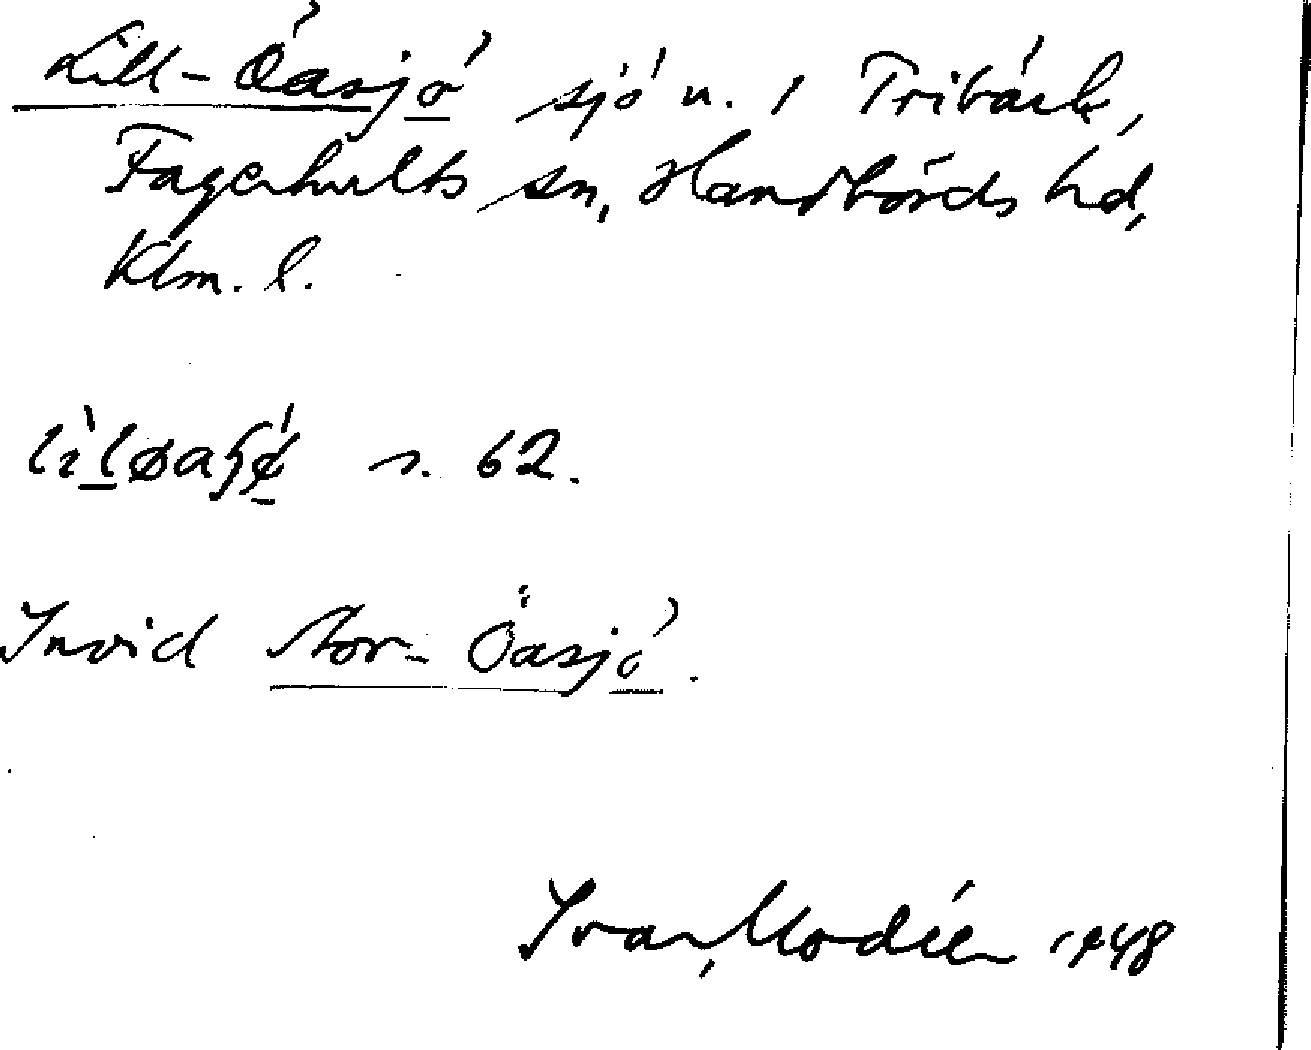 Lill-Öasjö sjö n. i Tribäck,
Fagerhults sn, Handbörds hd,
Klm. l.
s. 62.
Invid Stor-Öasjö.
Ivar Modéer 1948